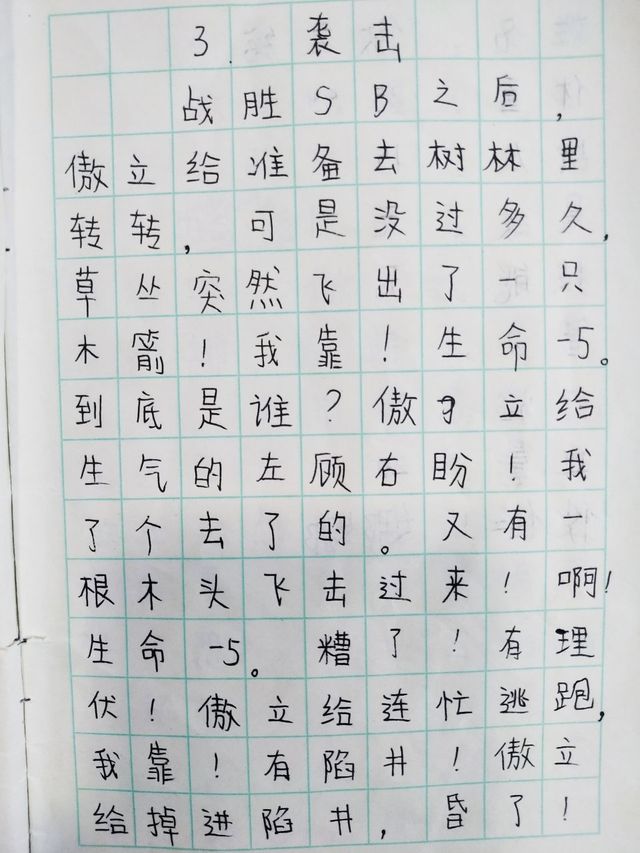 3. 袭击
战胜SB之后，
傲立给准备去树林里
转转，可是没过多久，
草丛突然飞出了一只
木箭！我靠！生命-5。
到底是谁？傲立给
生气的左顾右盼！我
了个去了的。又有一
根木头飞击过来！啊！
生命-5。糟了！有理
伏！傲立给连忙逃跑，
我靠！有陷井！傲立
给掉进陷井，昏了！